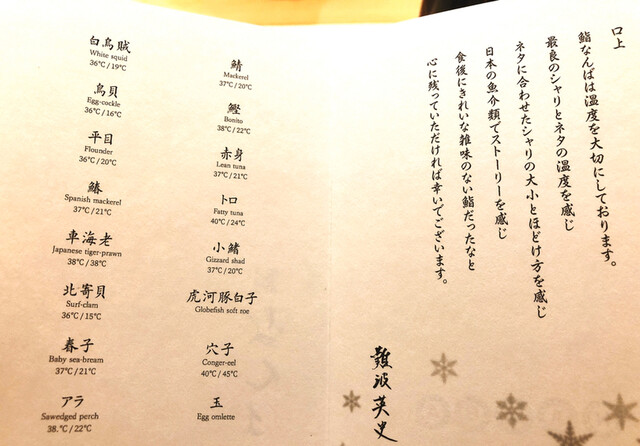 口上
鮨なんばは温度を大切にしております。
最良のシャリとネタの温度を感じ
ネタに合わせたシャリの大小とほどけ方を感じ
日本の魚介類でストーリーを感じ
食後にきれいな雑味のない鮨だったなと
心に残っていただければ幸いでございます。
難波英史
白烏賊
White squid
36℃/19℃
鳥貝
Egg-cockle
36℃/16℃
平目
Flounder
36℃/20℃
鰆
Spanish mackerel
37℃/21℃
車海老
Japanese tiger-prawn
38℃/38℃
北寄貝
Surf-clam
36℃/15℃
春子
Baby sea-bream
37℃/21℃
アラ
Sawedged perch
38.℃/22℃
鯖
Mackerel
37℃/20℃
鰹
Bonito
38℃/22℃
赤身
Lean tuna
37℃/21℃
トロ
Fatty tuna
40℃/24℃
小鰭
Gizzard shad
37℃/20℃
虎河豚白子
Globefish soft roe
穴子
Conger-eel
40℃/45℃
玉
Egg omlette